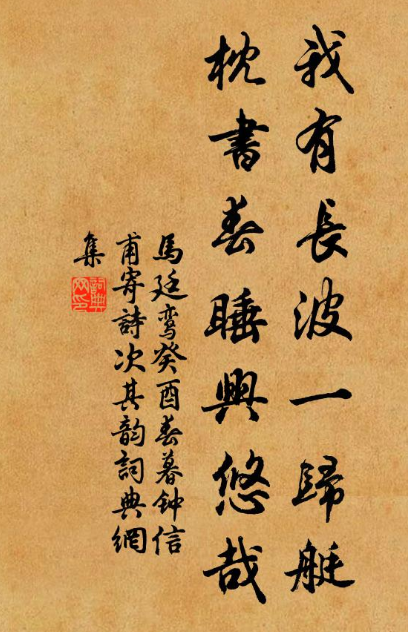 我有長波一歸艇
枕書春睡興悠哉
馬廷鸞癸酉春暮钟信
甫寄詩次其韵詞典網
集
詞典網印